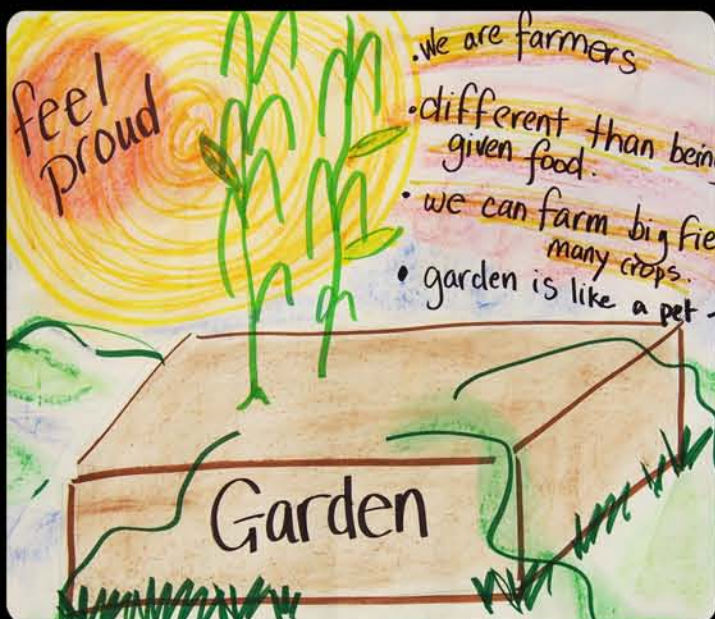 feel
proud
• we are farmers
• different than
given food.
• we can farm big
many crops.
• garden is like a pet -
Garden